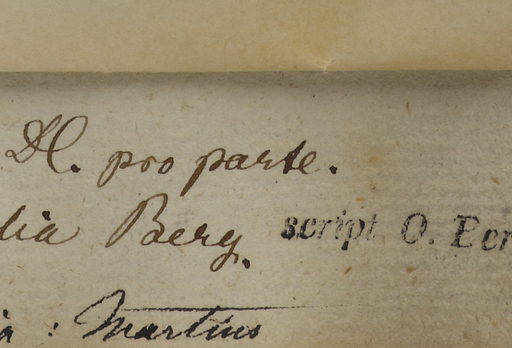 Dl. pro parte.
lia Berg. script O. Ber
ia : Martius